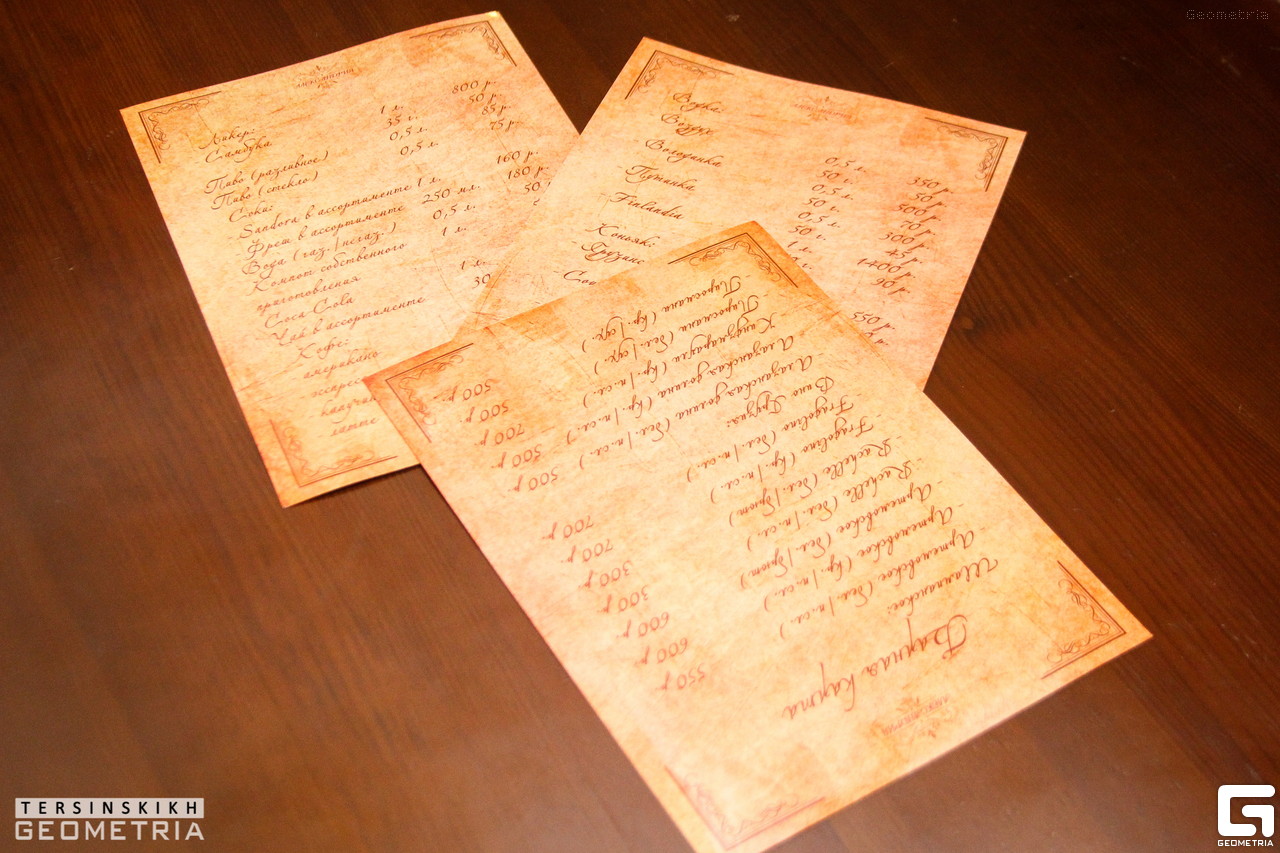 Geometria
АЛЕКСАНДРИЯ
Ликер: 1 л. 800 р.
Самбука 35 г. 50 р.
Пиво (разливное) 0,5 л. 85 р.
Пиво (стекло) 0,5 л. 75 р.
Соки:
Sandora в ассортименте 1 л. 160 р.
Фреш в ассортименте 250 мл. 180 р.
Вода (газ. | негаз.) 0,5 л. 50
Компот собственного 1 л.
приготовления
Coca Cola 1 л.
Чай в ассортименте 30
Кофе:
американо
латте
Водка:
Воздух 0,5 л. 350 р.
50 г. 50 р.
Володинка 0,5 л. 500 р.
50 г. 70 р.
Путинка 0,5 л. 300 р.
50 г. 45 р.
Finlandia 1 л. 1400 р.
90 р.
Коньяк:
550 р.
АЛЕКСАНДРИЯ
Барная карта
Шампанское:
Артемовское (бел. | п. сл.) 550 р.
Артемовское (кр. | п. сл.) 600 р.
Артемовское (бел. | брют) 600 р.
Rachelle (бел. | п. сл.) 300 р.
Rachelle (бел. | брют) 300 р.
Fragolino (кр. | п. сл.) 700 р.
Fragolino (бел. | п. сл.) 700 р.
Вино Грузия:
Алазанская долина (бел. | п. сл.) 500 р.
Алазанская долина (кр. | п. сл.) 500 р.
Киндзмараули (кр. | п. сл.) 700 р.
Пиросмани (бел. | сух.) 500 р.
Пиросмани (кр. | сух.) 500 р.
TERSINSKIKH
GEOMETRIA
GEOMETRIA